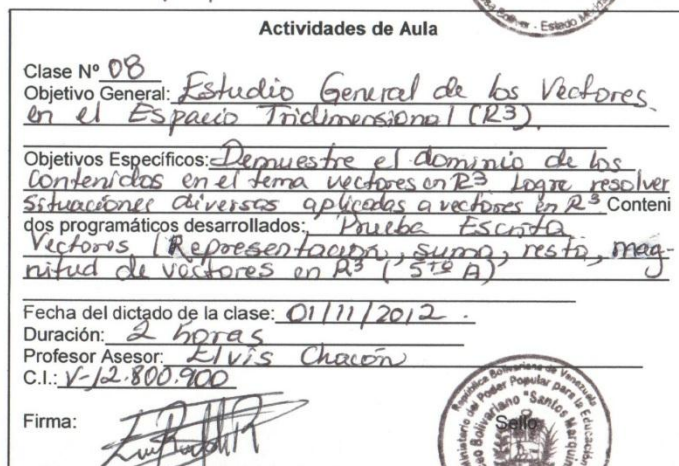 Bolívar - Estado
Actividades de Aula
Clase Nº 08
Objetivo General: Estudio General de los Vectores
en el Espacio Tridimensional (R3).
Objetivos Específicos: Demuestre el dominio de los
contenidos en el tema vectores en R3 Logre resolver
situaciones diversas aplicadas a vectores en R3 Conteni
dos programáticos desarrollados: Prueba Escrita
Vectores (Representación, suma, resta, mag-
nitud de vectores en R3 (5to A)
Fecha del dictado de la clase: 01/11/2012.
Duración: 2 horas
Profesor Asesor: Elvis Chacón
C.I.: V-12.800.900
República Bolivariana de Venezuela
Ministerio del Poder Popular para la Educación
Bolivariano "Santos Marqui
Firma:
Sello